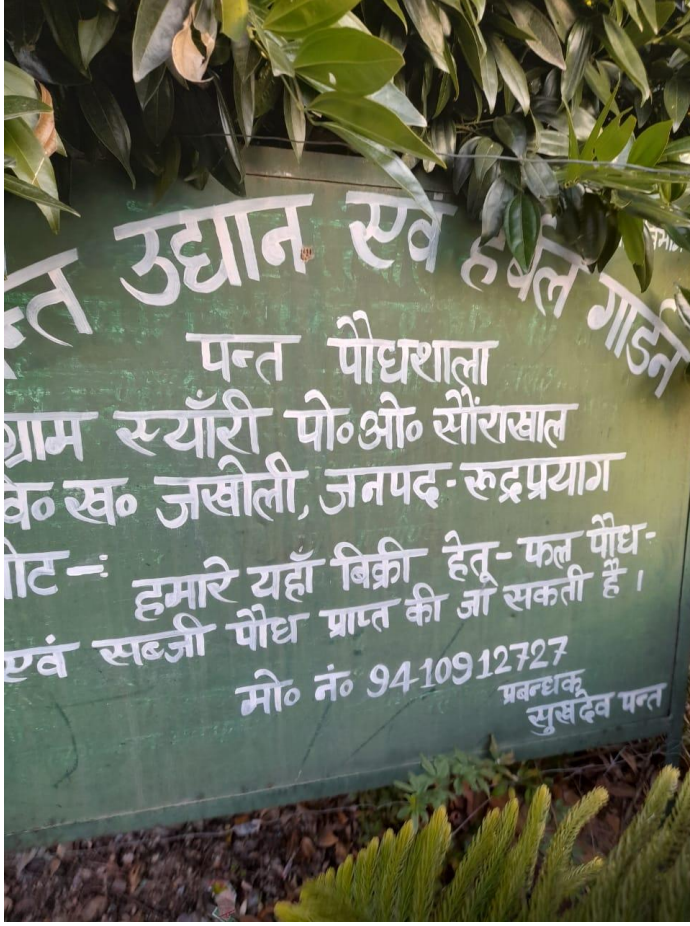 न्त उद्यान एवं हर्बल गार्डन
पन्त पौधशाला
ग्राम स्याँरी पो॰ओ॰ सौंराखाल
वि॰ख॰ जखोली, जनपद-रूद्रप्रयाग
नोट-: हमारे यहाँ बिक्री हेतू-फल पौध-
एवं सब्जी पौध प्राप्त की जा सकती है।
मो॰ नं॰ 9410912727
प्रबन्धक
सुखदेव पन्त